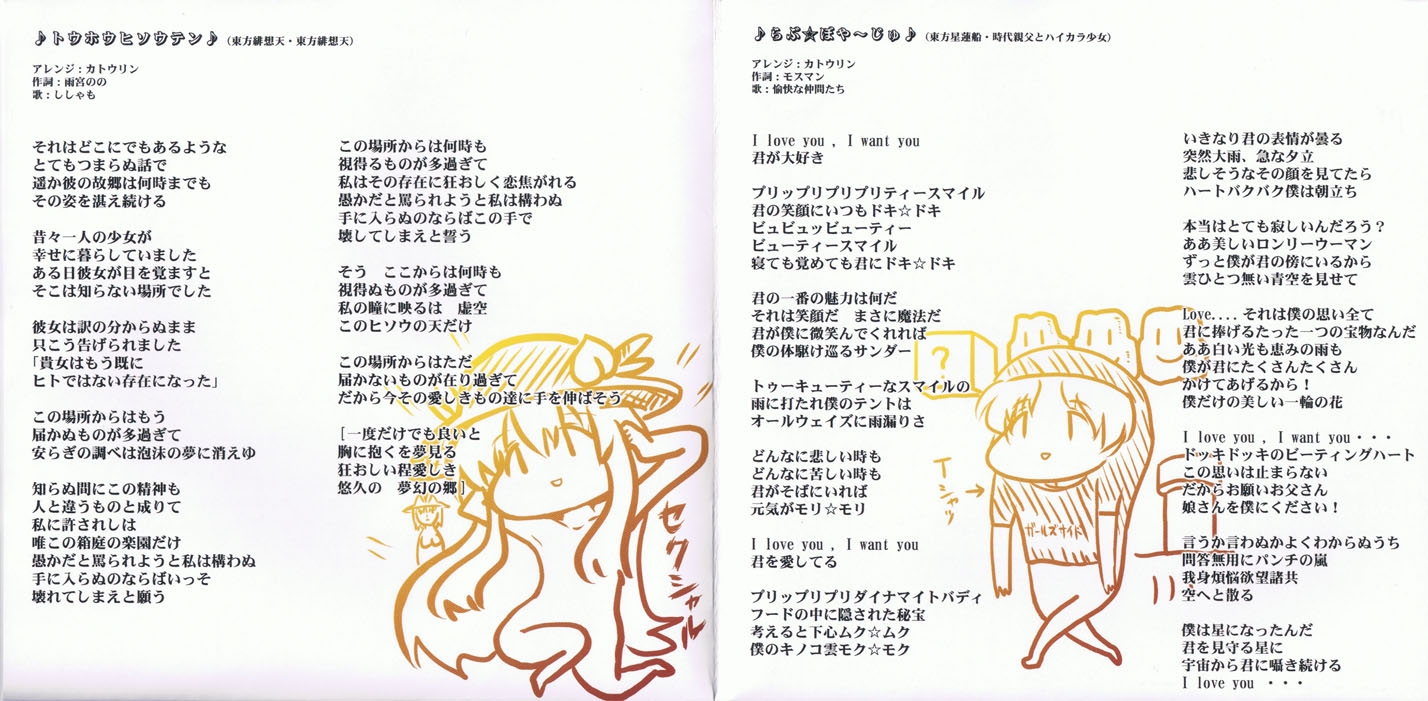 ♪トウホウヒソウテン♪（東方緋想天・東方緋想天）
アレンジ：カトウリン
作詞：雨宮のの
歌：ししゃも
それはどこにでもあるような
とてもつまらぬ話で
遥か彼の故郷は何時までも
その姿を湛え続ける
昔々一人の少女が
幸せに暮らしていました
ある日彼女が目を覚ますと
そこは知らない場所でした
彼女は訳の分からぬまま
只こう告げられました
「貴女はもう既に
ヒトではない存在になった」
この場所からはもう
届かぬものが多過ぎて
安らぎの調べは泡沫の夢に消えゆ
知らぬ間にこの精神も
人と違うものと成りて
私に許されしは
唯この箱庭の楽園だけ
愚かだと罵られようと私は構わぬ
手に入らぬのならばいっそ
壊れてしまえと願う
この場所からは何時も
視得るものが多過ぎて
私はその存在に狂おしく恋焦がれる
愚かだと罵られようと私は構わぬ
手に入らぬのならばこの手で
壊してしまえと誓う
そう　ここからは何時も
視得ぬものが多過ぎて
私の瞳に映るは　虚空
このヒソウの天だけ
この場所からはただ
届かないものが在り過ぎて
だから今その愛しきもの達に手を伸ばそう
［一度だけでも良いと
胸に抱くを夢見る
狂おしい程愛しき
悠久の　夢幻の郷］
セクシャル
♪らぶ☆ぼや～じゅ♪（東方星蓮船・時代親父とハイカラ少女）
アレンジ：カトウリン
作詞：モスマン
歌：愉快な仲間たち
I love you , I want you
君が大好き
プリップリプリプリティースマイル
君の笑顔にいつもドキ☆ドキ
ビュビュッビューティー
ビューティースマイル
寝ても覚めても君にドキ☆ドキ
君の一番の魅力は何だ
それは笑顔だ　まさに魔法だ
君が僕に微笑んでくれれば
僕の体駆け巡るサンダー
トゥーキューティーなスマイルの
雨に打たれ僕のテントは
オールウェイズに雨漏りさ
どんなに悲しい時も
どんなに苦しい時も
君がそばにいれば
元気がモリ☆モリ
I love you , I want you
君を愛してる
プリップリプリダイナマイトバディ
フードの中に隠された秘宝
考えると下心ムク☆ムク
僕のキノコ雲モク☆モク
?
Tシャツ
ガールズサイド
いきなり君の表情が曇る
突然大雨、急な夕立
悲しそうなその顔を見てたら
ハートバクバク僕は朝立ち
本当はとても寂しいんだろう？
ああ美しいロンリーウーマン
ずっと僕が君の傍にいるから
雲ひとつ無い青空を見せて
Love.... それは僕の思い全て
君に捧げるたった一つの宝物なんだ
ああ白い光も恵みの雨も
僕が君にたくさんたくさん
かけてあげるから！
僕だけの美しい一輪の花
I love you , I want you・・・
ドッキドッキのビーティングハート
この思いは止まらない
だからお願いお父さん
娘さんを僕にください！
言うか言わぬかよくわからぬうち
問答無用にパンチの嵐
我身煩悩欲望諸共
空へと散る
僕は星になったんだ
君を見守る星に
宇宙から君に囁き続ける
I love you ・・・